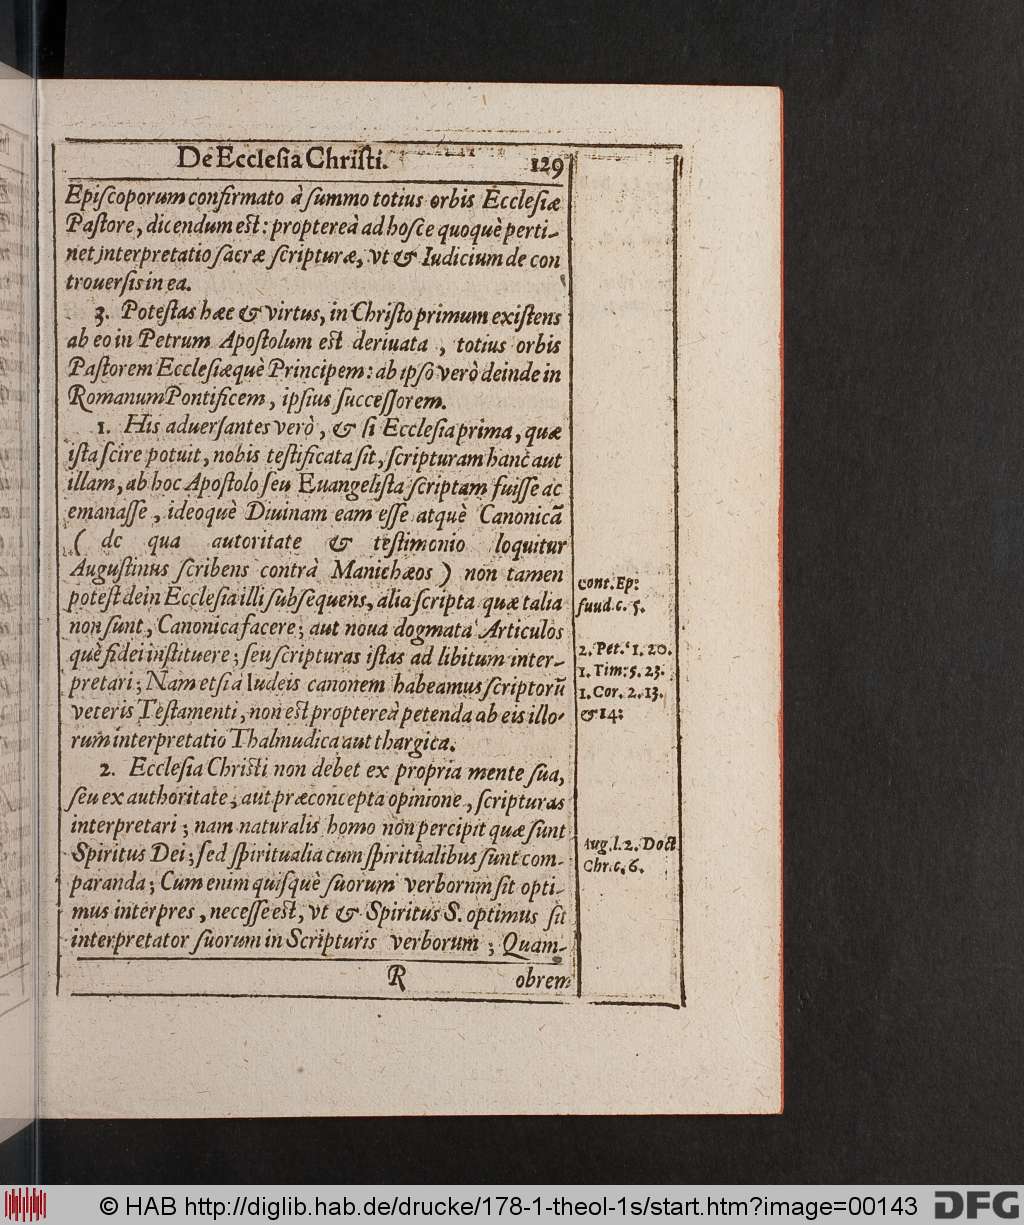 De Ecclesia Christi. 129
Episcoporum confirmato à summo totius orbis Ecclesiæ
Pastore, dicendum est: propterea ad hosce quoquè perti-
net interpretatio sacræ scripturæ, vt & Iudicium de con
trouersis in ea.
3. Potestas hæc & virtus, in Christo primum existens
ab eo in Petrum Apostolum est deriuata, totius orbis
Pastorem Ecclesiæquè Principem: ab ipso verò deinde in
Romanum Pontificem, ipsius successorem.
1. His aduersantes verò, & si Ecclesia prima, quæ
ista scire potuit, nobis testificata sit, scripturam hanc aut
illam, ab hoc Apostolo seu Euangelista scriptam fuisse ac
emanasse, ideoquè Diuinam eam esse atquè Canonicã
( de qua autoritate & testimonio loquitur
Augustinus scribens contrà Manichæos ) non tamen
potest dein Ecclesia illi subsequens, alia scripta quæ talia
non sunt, Canonica facere; aut noua dogmata Articulos
què fidei instituere; seu scripturas istas ad libitum inter-
pretari; Nam etsi à Iudeis canonem habeamus scriptorũ
veteris Testamenti, non est propterea petenda ab eis illo-
rum interpretatio Thalmudica aut thargica.
2. Ecclesia Christi non debet ex propria mente sua,
seu ex authoritate, aut præconcepta opinione, scripturas
interpretari; nam naturalis homo non percipit quæ sunt
Spiritus Dei; sed spiritualia cum spiritualibus sunt com-
paranda; Cum enim quisquè suorum verborum sit opti-
mus interpres, necesse est, vt & Spiritus S. optimus sit
interpretator suorum in Scripturis verborum; Quam-
R obrem
cont. Ep:
fuud. c. 5.
2. Pet. 1. 20.
1. Tim: 5. 23.
1. Cor. 2. 13.
& 14:
Aug. l. 2. Doct
Chr. c. 6.
© HAB http://diglib.hab.de/drucke/178-1-theol-1s/start.htm?image=00143 DFG